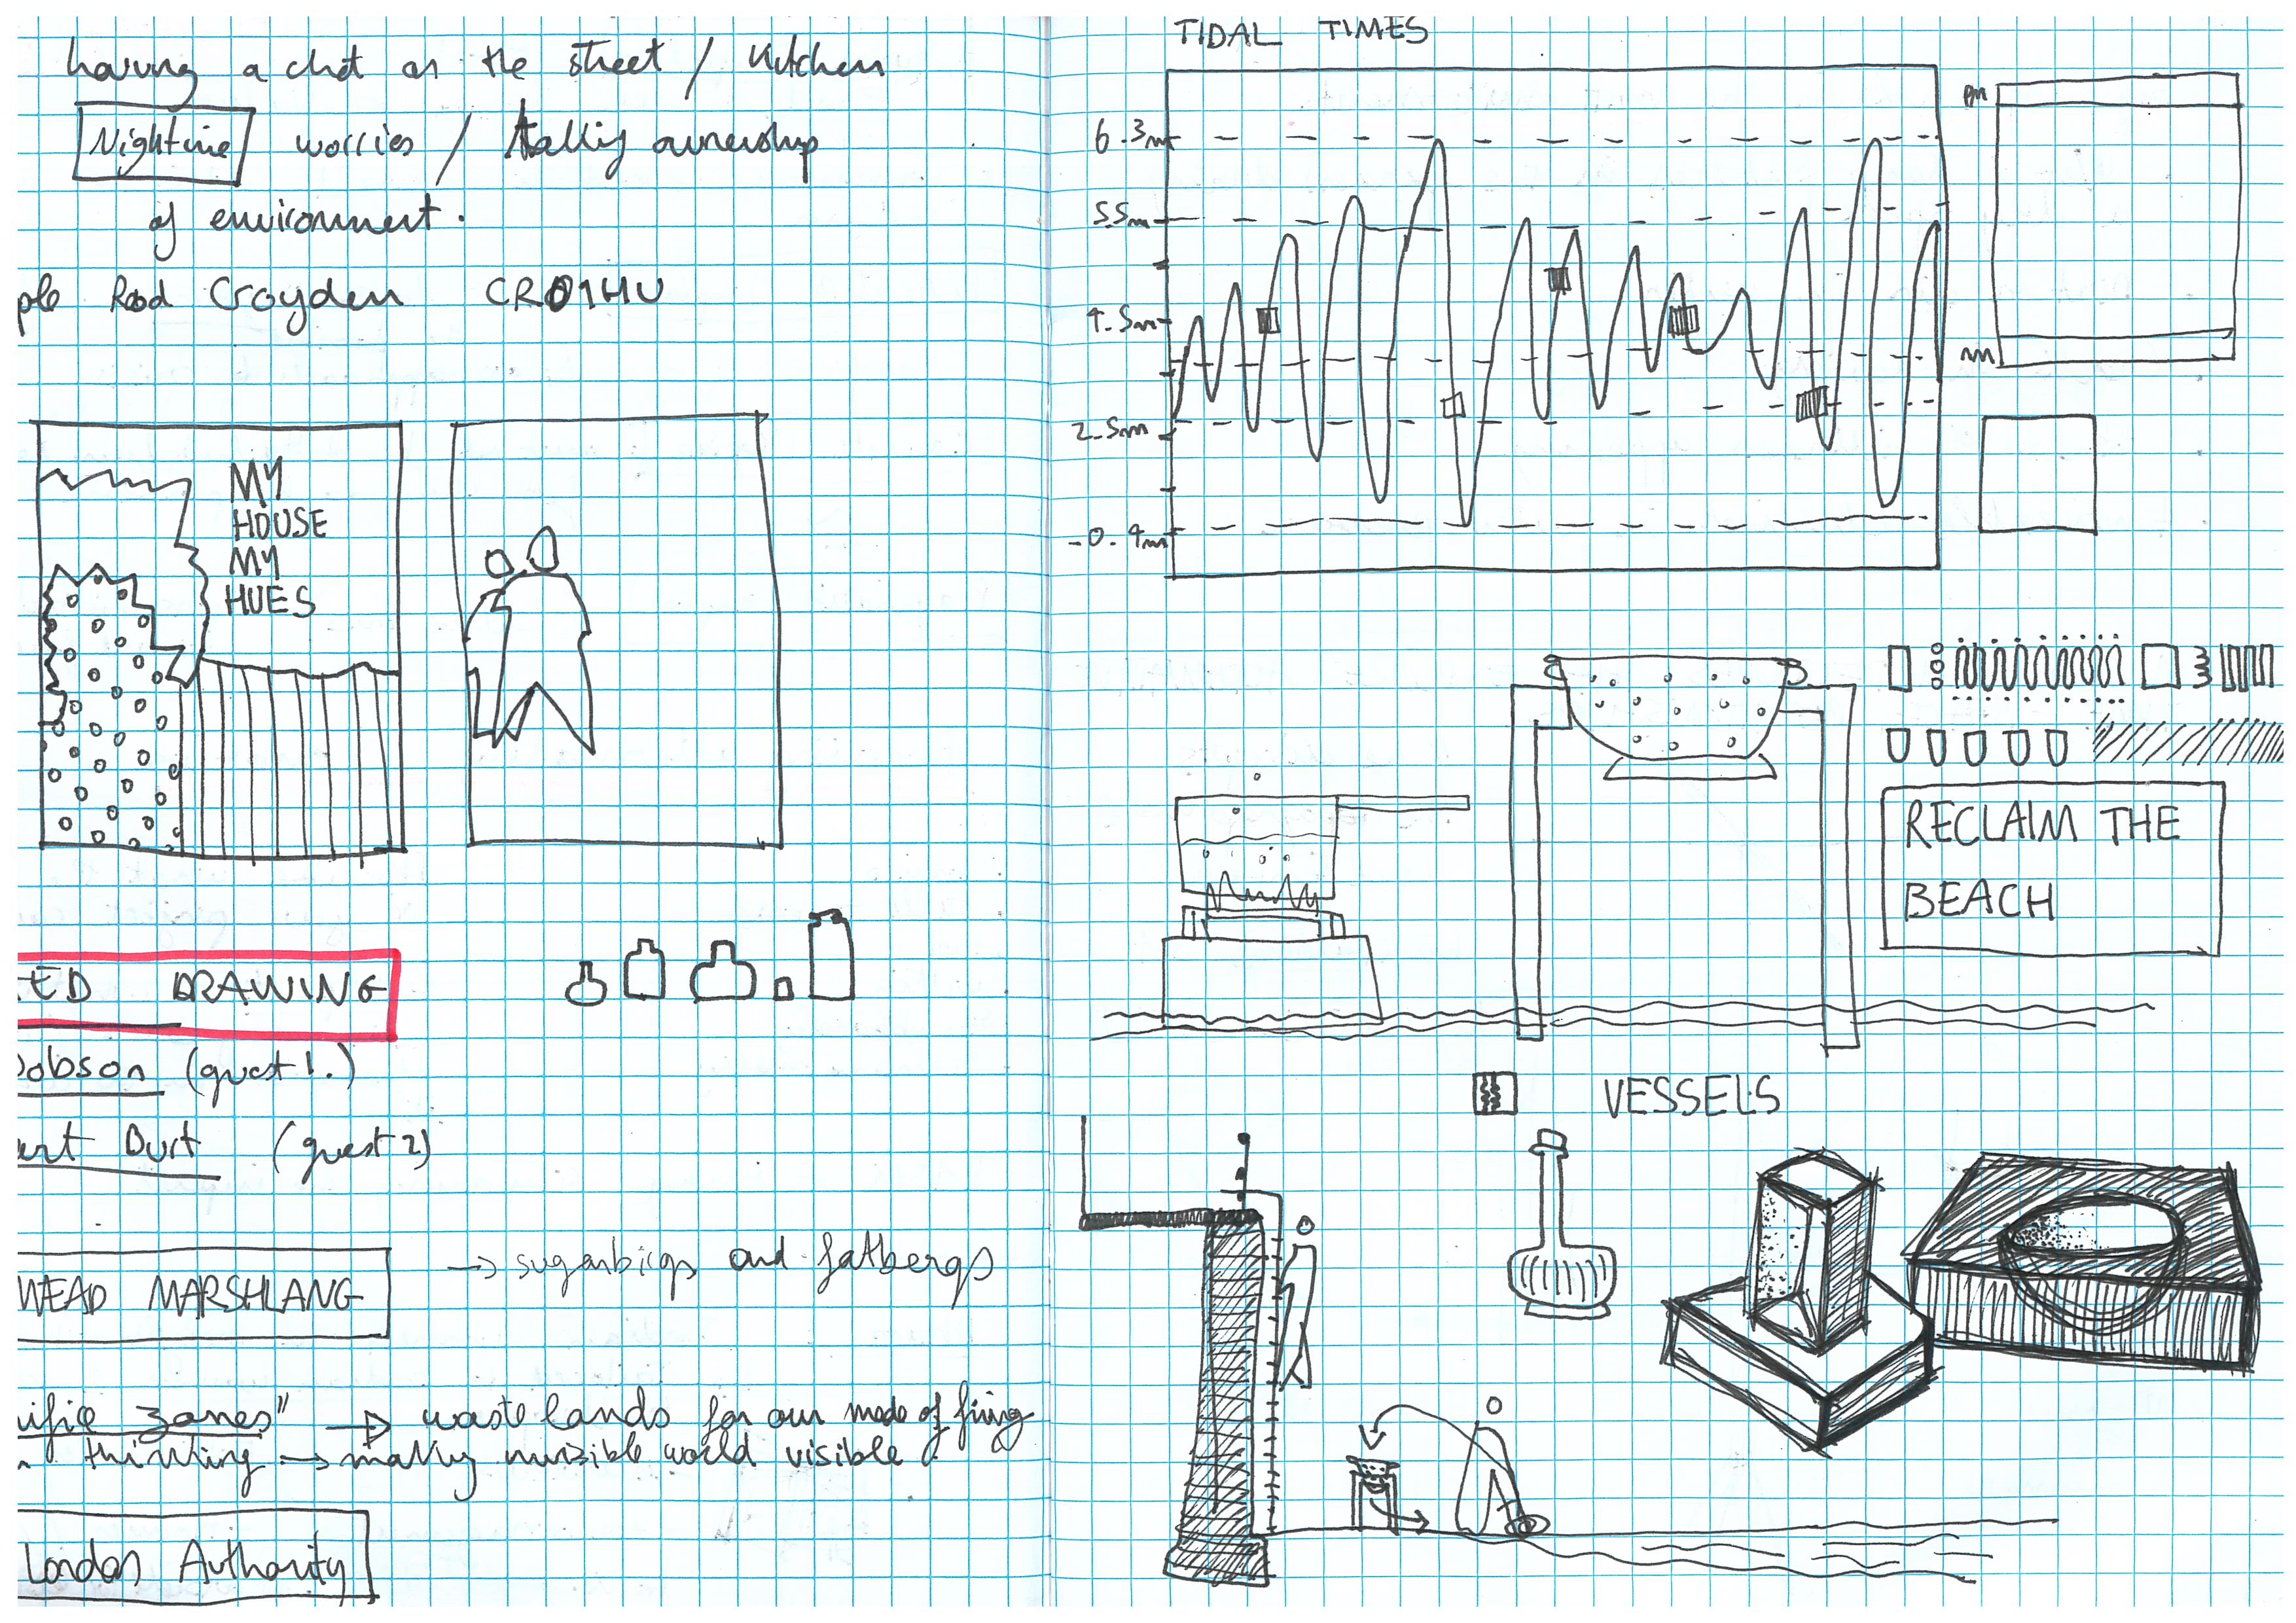 having a chat on the street / kitchen
Nightime worries / talking ownership
of environment.
ple Road Croyden CR01HU
MY
HOUSE
MY
HUES
ED DRAWING
obson (guest 1.)
ert Burt (guest 2)
WEAD MARSHLANG
→ sugarbigs and fatbergs
ifice zones" → waste lands for our mode of
thinking → making invisible world visible.
London Authority
TIDAL TIMES
6.3m
5.5m
4.5m
2.5m
-0.4m
pm
RECLAIM THE
BEACH
VESSELS